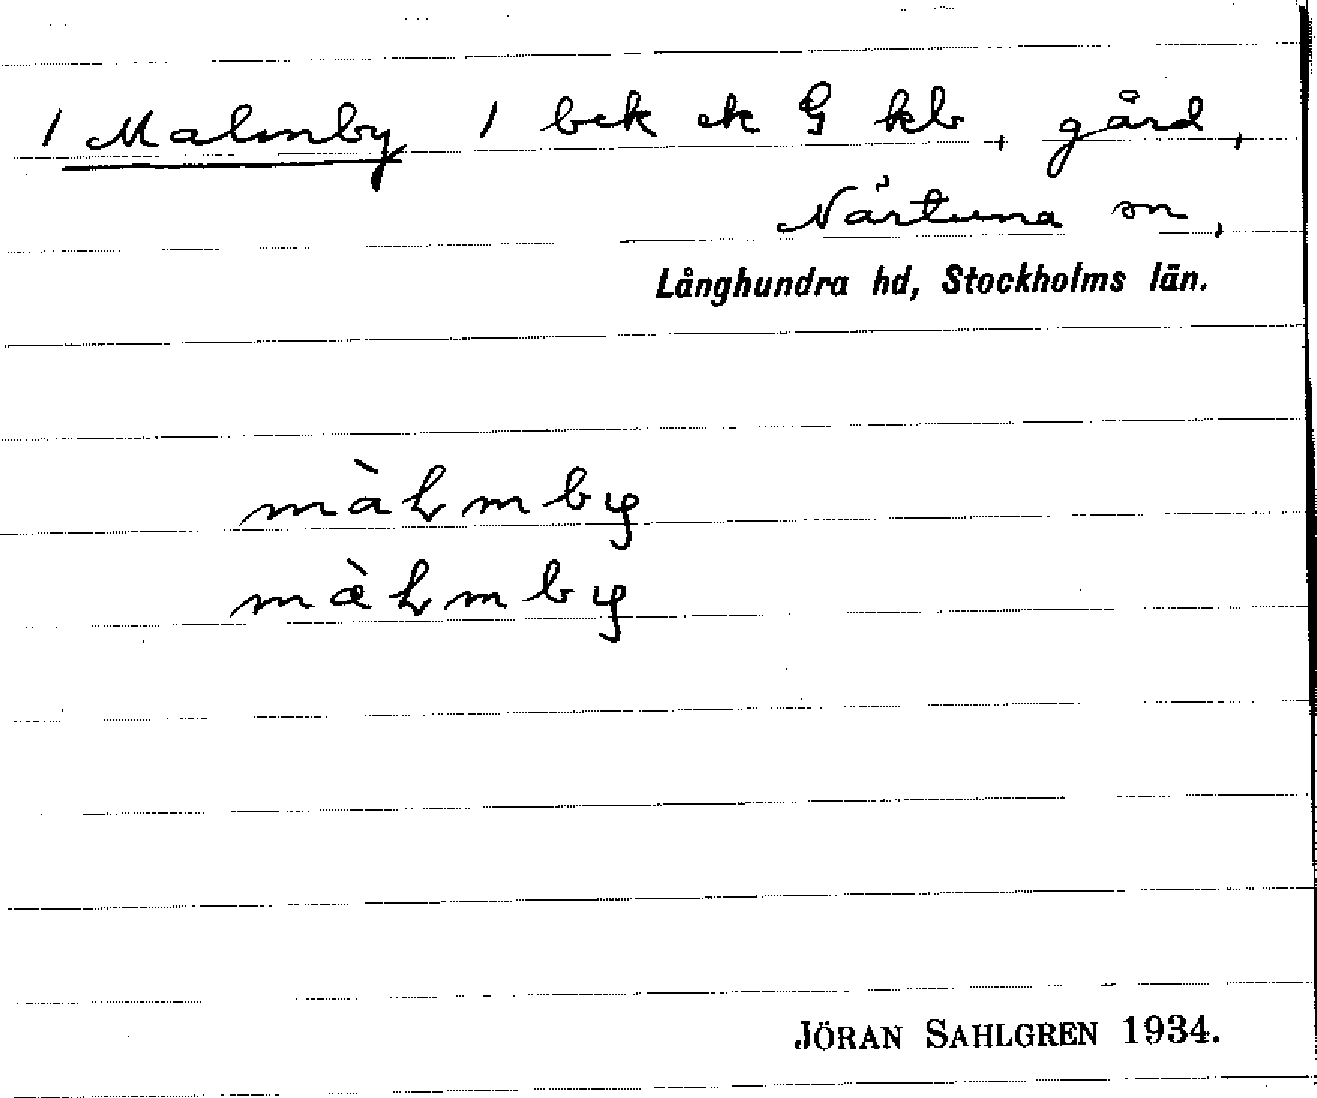 / Malmby / bek ek G kb, gård,
Närtuna sn,
Långhundra hd, Stockholms län.
màLmby
màLmby
JÖRAN SAHLGREN 1934.